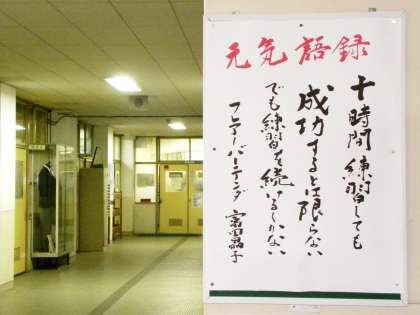 元気語録
十時間練習しても
成功するとは限らない
でも練習を続けるしかない
フレアーバーテンダー
富田晶子